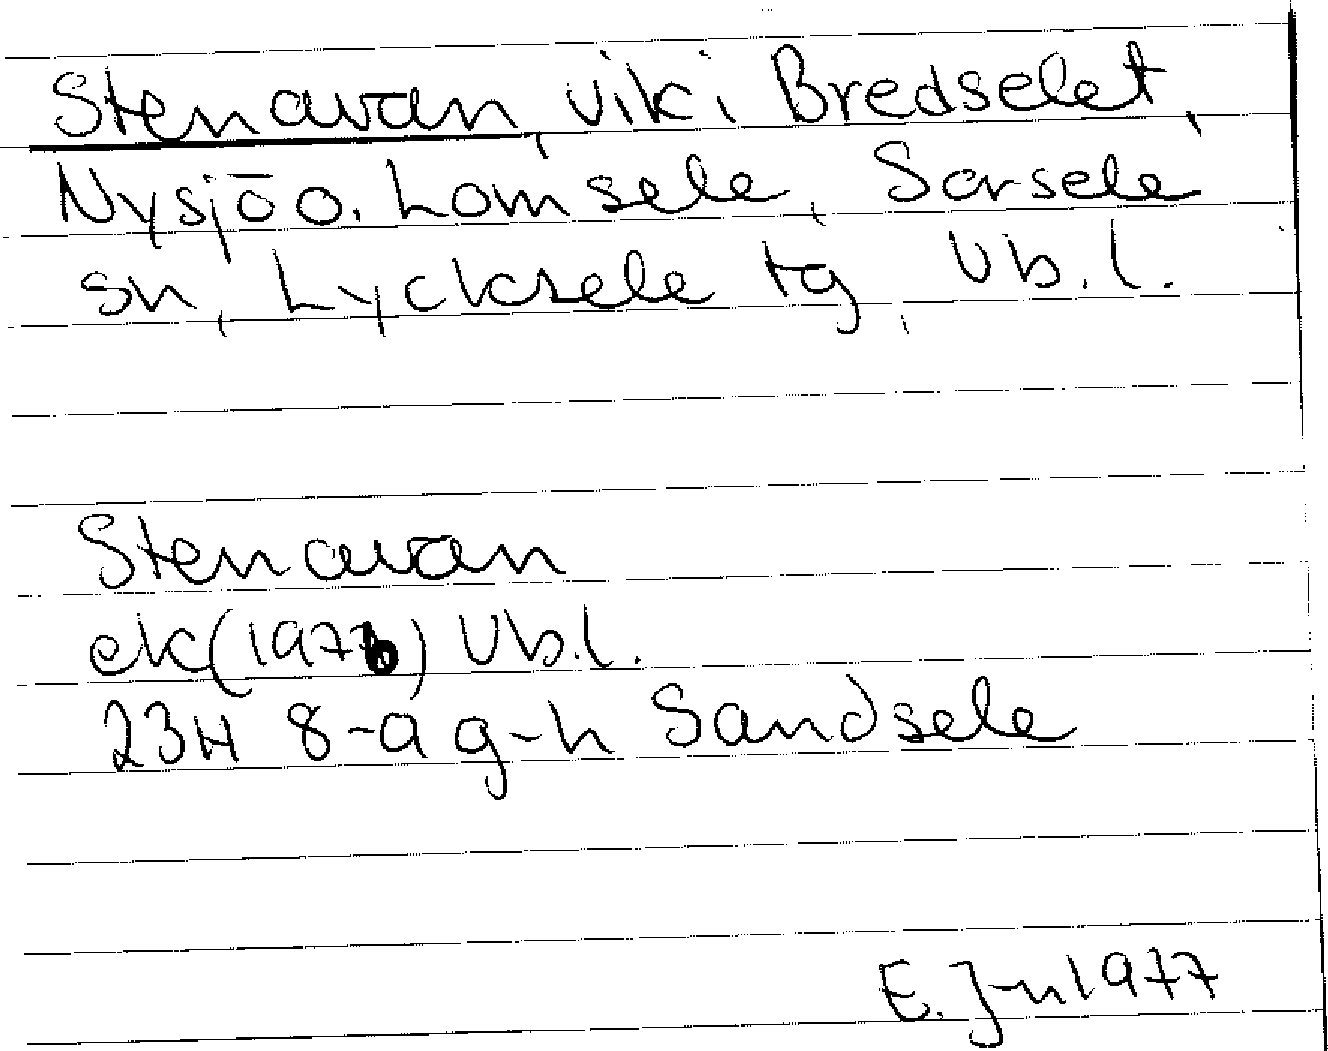 Stenavan, vik i Bredselet,
Nysjö o. Lomsele, Sorsele
sn, Lycksele tg, Vb. l.
Stenavan
ek (1976) Vb. l.
23H 8-9 g-h Sandsele
E. J-n 1977